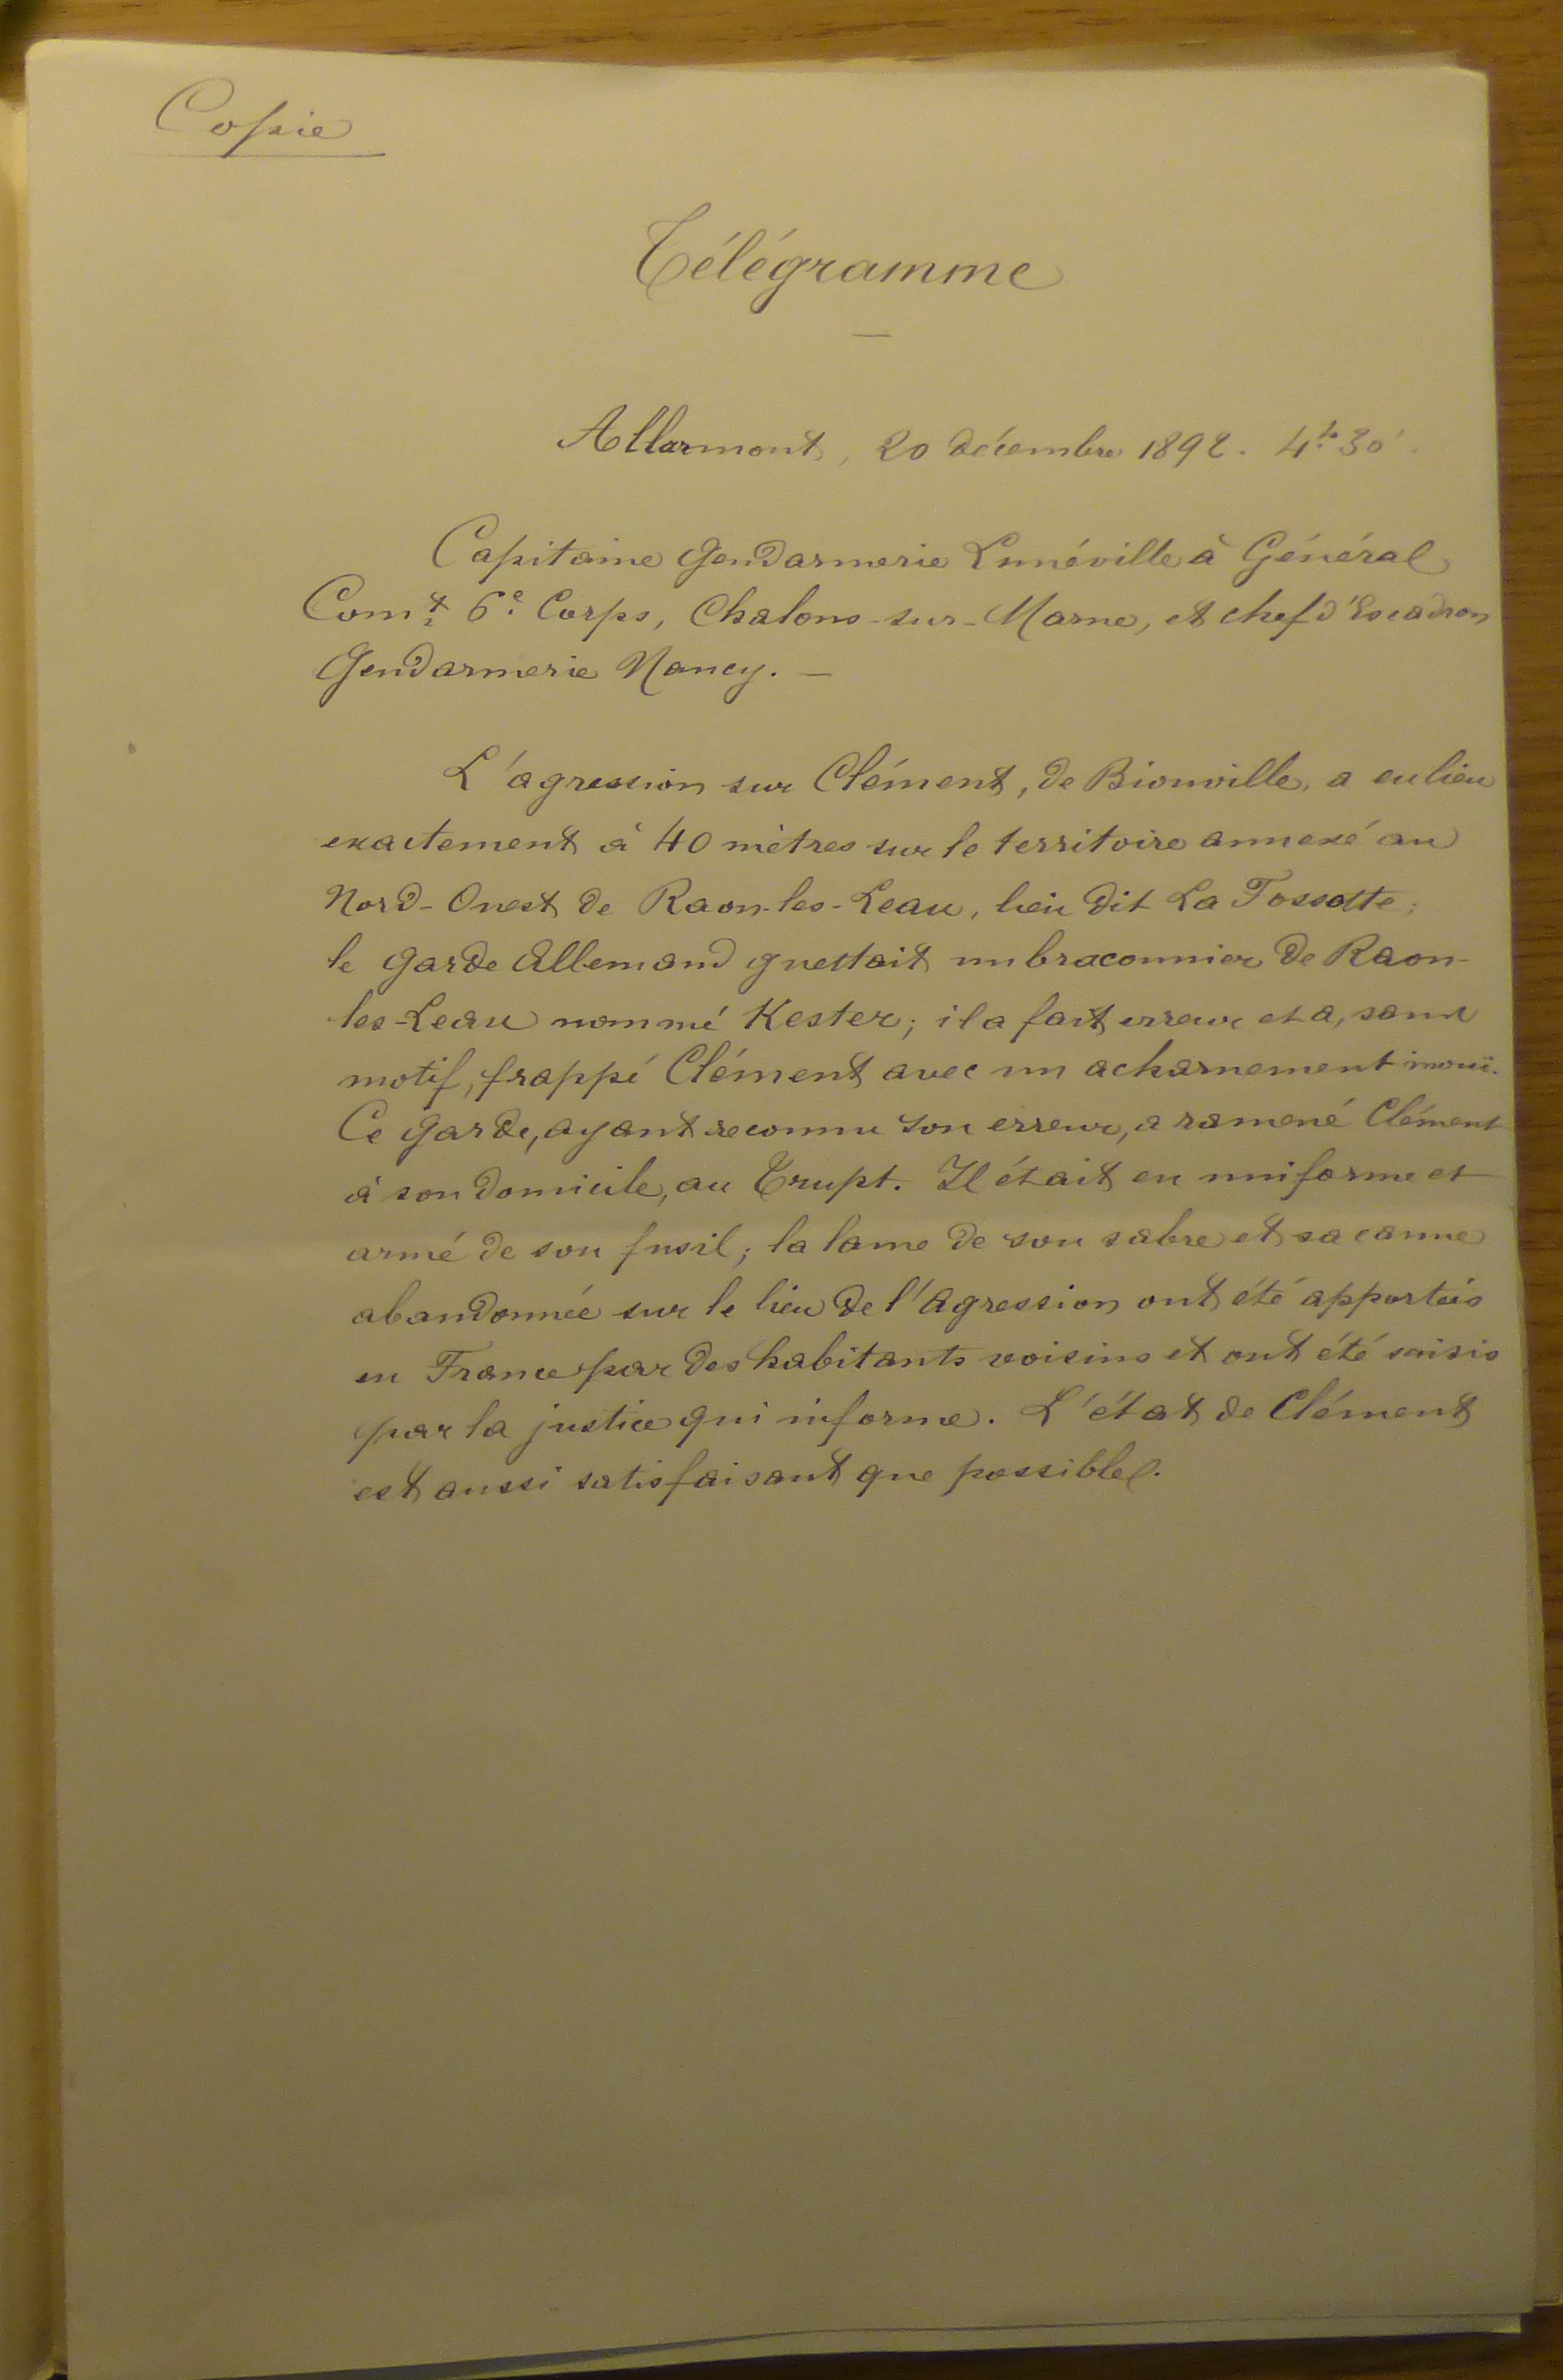 Copie
Télégramme
Allarmont, 20 décembre 1892. 4h 30'.
Capitaine Gendarmerie Lunéville à Général
Comt 6e Corps, Chalons-sur-Marne, et chef d'Escadron
Gendarmerie Nancy. —
L'agression sur Clément, de Bionville, a eu lieu
exactement à 40 mètres sur le territoire annexé au
Nord-Ouest de Raon-les-Leau, lieu dit La Fossotte;
le garde Allemand guettait un braconnier de Raon-
les-Leau nommé Kester; il a fait erreur et a, sans
motif, frappé Clément avec un acharnement inouï.
Ce garde, ayant reconnu son erreur, a ramené Clément
à son domicile, au Trupt. Il était en uniforme et
armé de son fusil; la lame de son sabre et sa canne
abandonnée sur le lieu de l'agression ont été apportés
en France par des habitants voisins et ont été saisis
par la justice qui informe. L'état de Clément
est aussi satisfaisant que possible.